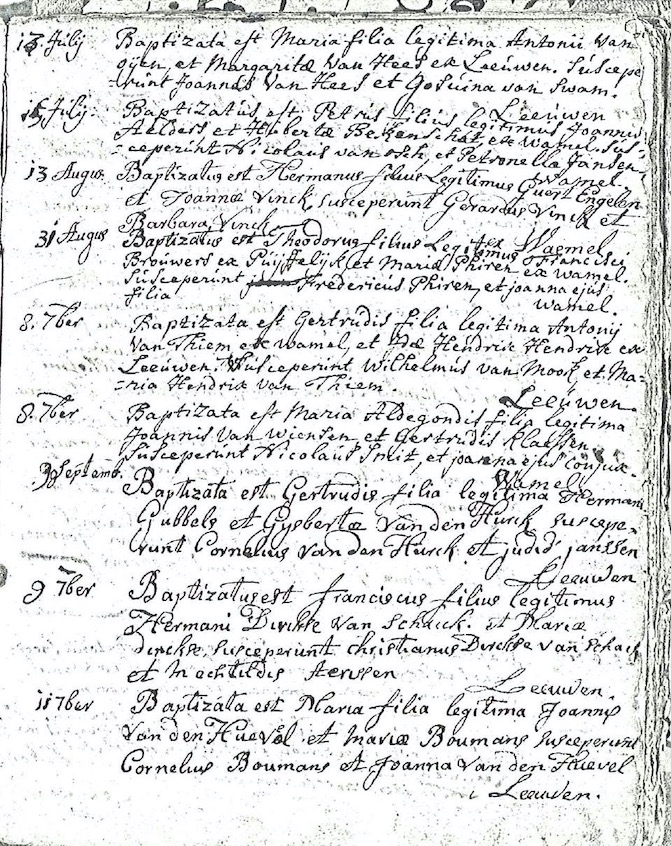 13 Julij Baptizata est Maria filia legitima Antonii Van
oijen, et Margaritæ Van Hees ex Leeuwen. Suscepe
-runt Joannes Van Hees et Gosuina van Swam.
Leeuwen
15 Julij. Baptizatus est Petrus filius legitimus Joannis
Aelders, et Hubertæ Bekenschot, ex Wamel. Sus-
-ceperunt Nicolaus van osch, et Petronella Jansen
Wamel.
13 Augus Baptizatus est Hermanus filius Legitimus Evert Engelen
et Joannæ Vinck, susceperunt Gerardus Vinck et
Barbara Vinck
ex Wamel
31 Augus Baptizatus est Theodorus filius Legitimus Francisci
Brouwers ex Puijffelijk et Mariæ Phiren ex wamel.
Susceperunt Fredericus Phiren, et joanna ejus
filia
Wamel.
8. 7ber Baptizata est Gertrudis filia legitima Antonij
Van Thiem ex wamel, et Idæ Hendrix Hendrix ex
Leeuwen. Susceperunt Wilhelmus van Mook, et Ma-
-ria Hendrix van Thiem.
Leeuwen.
8. 7ber Baptizata est Maria Aldegondis filia legitima
Joannis Van Wiensen et Gertrudis Klaessen
Susceperunt Nicolaus Smit, et joanna ejus conjux.
Wamel
Septemb. Baptizata est Gertrudis filia legitima Hermani
Gubbels et Gysbertæ Van den Hurck suscepe-
runt Cornelius Van den Hurck et judid janssen
Leeuwen
9 7ber Baptizatus est franciscus filius legitimus
Hermani Dirckse Van Schaick. et Mariæ
dirckse, susceperunt christianus Dirckse van schaick
et Mechtildis Aerssen
Leeuwen.
11 7ber Baptizata est Maria filia legitima Joannis
Van den Huevel et mariæ Boumans susceperunt
Cornelius Boumans et Joanna Van den Huevel
Leeuwen.